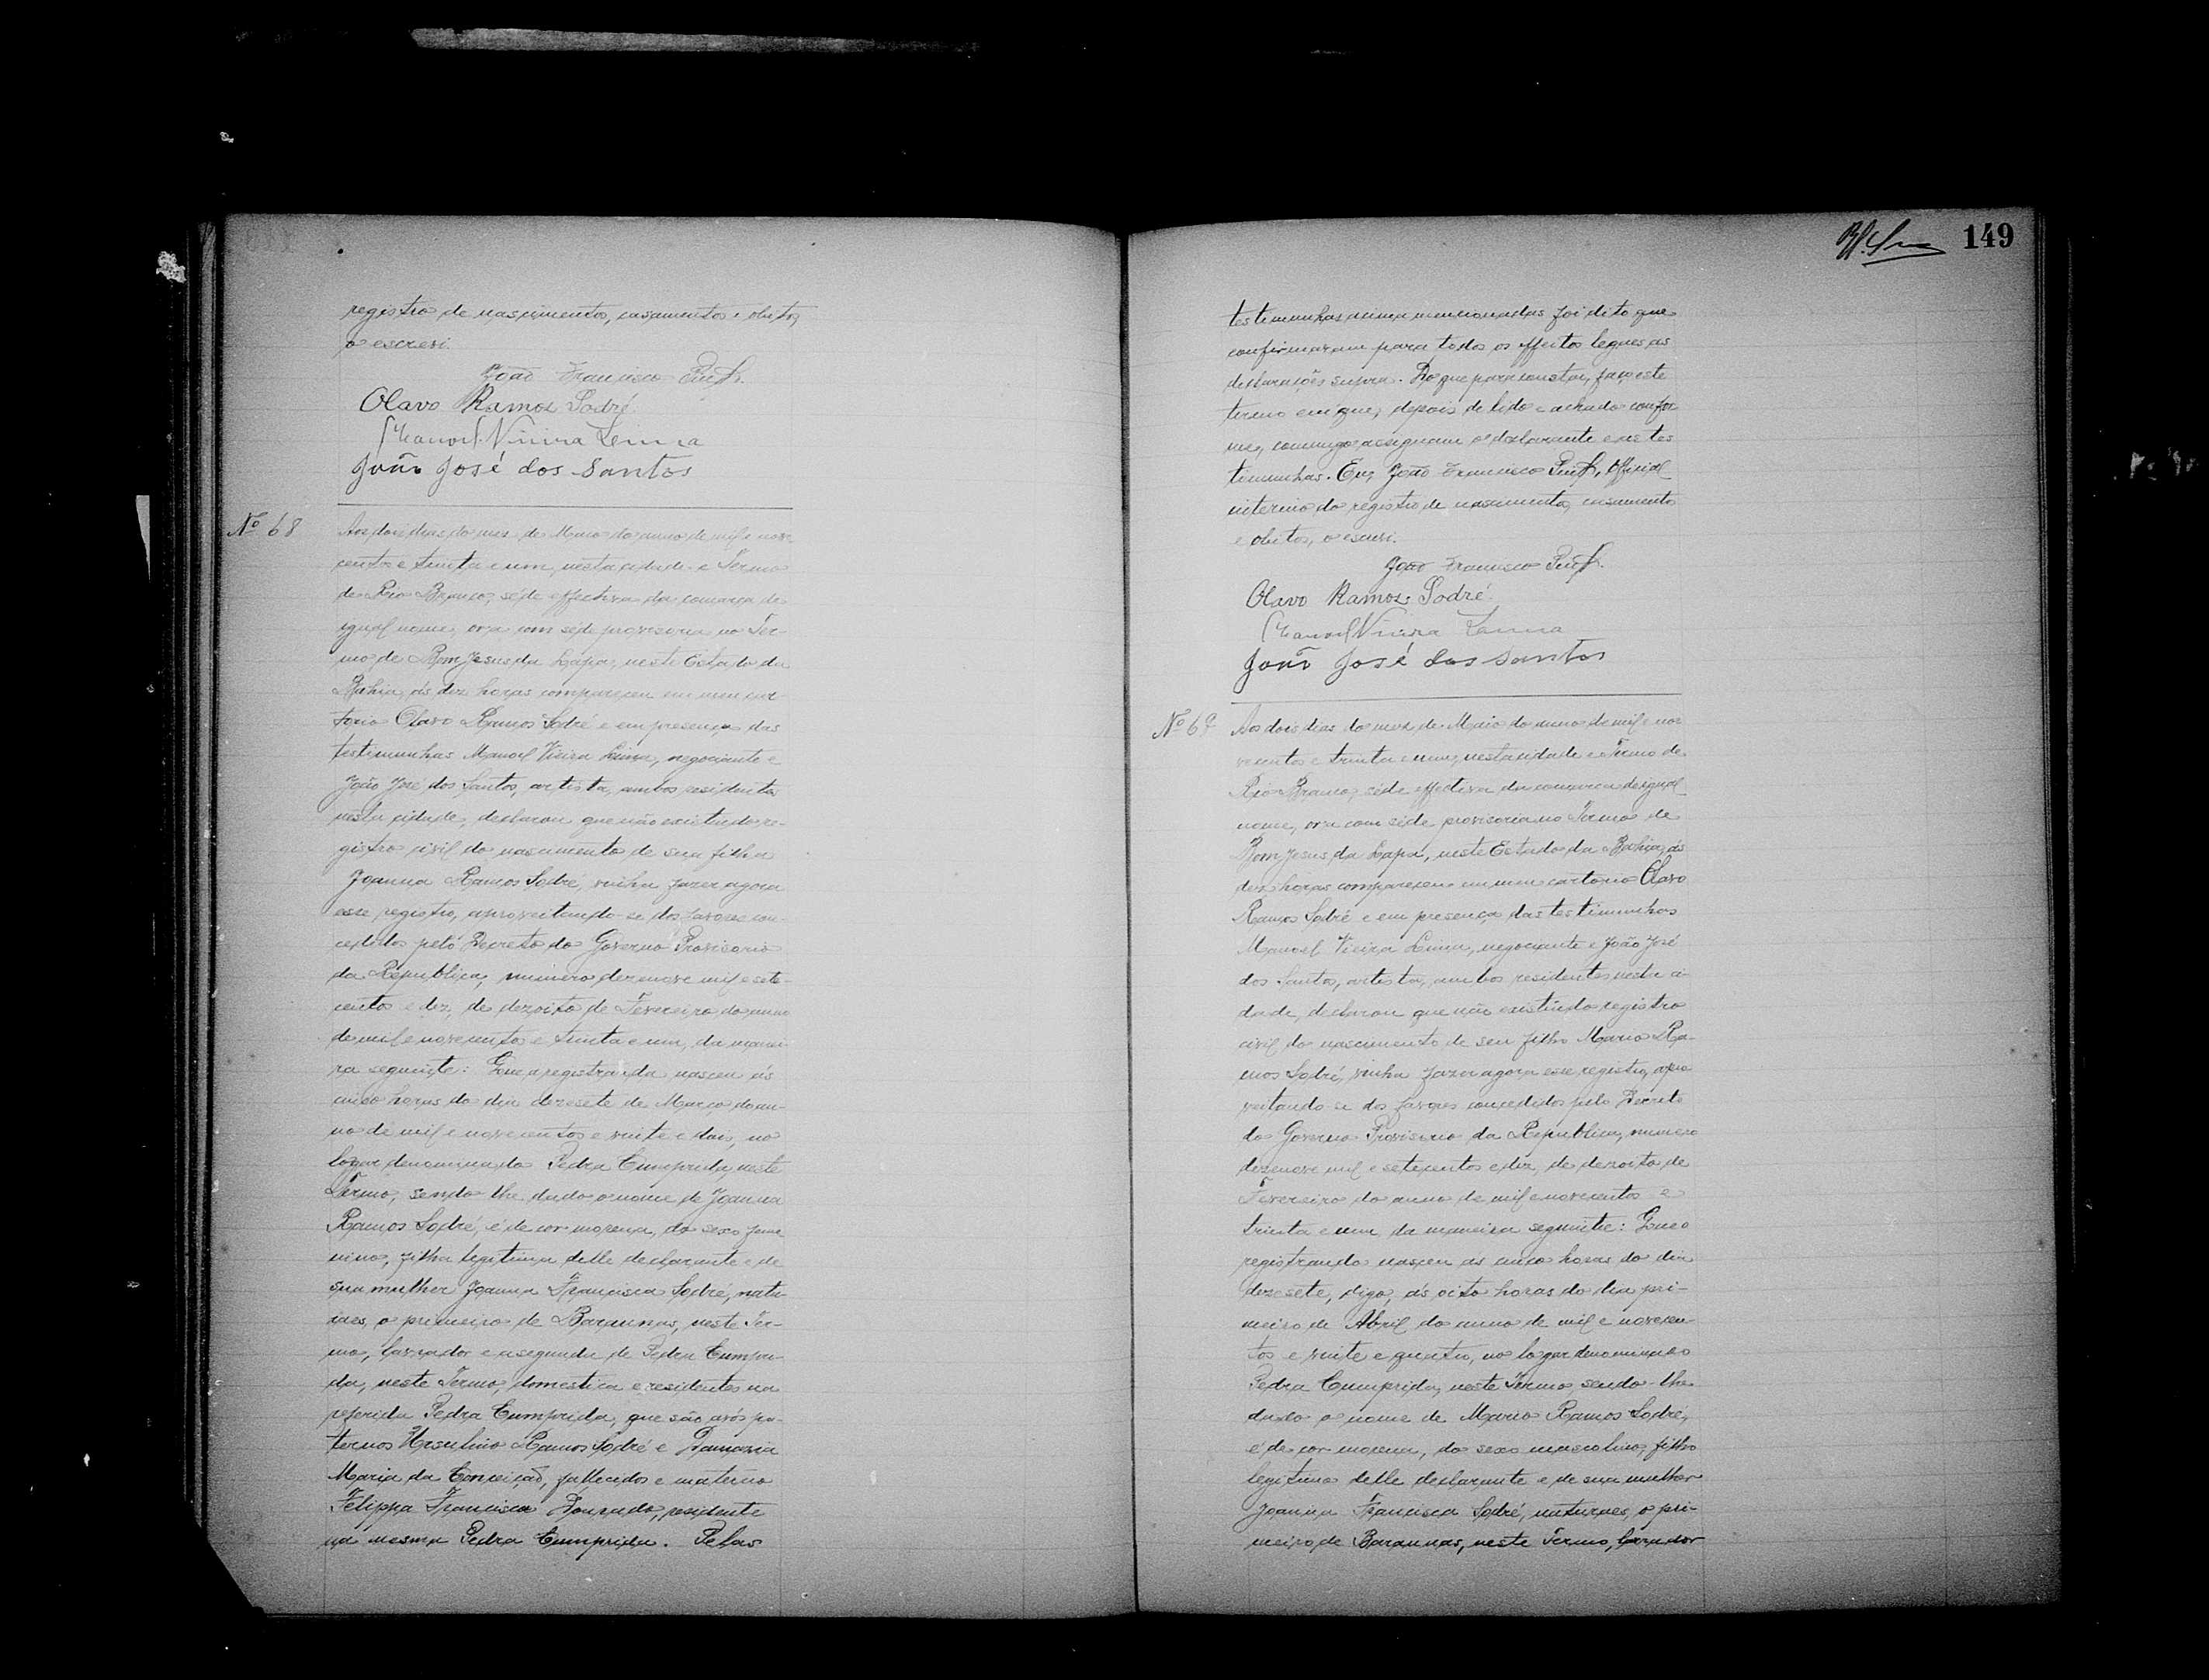 registro de nascimentos, casamentos e obitos,
o escrevi.
João Francisco
Olavo Ramos Sodré
Manoel Vieira Lema
João José dos Santos
Nº 68
Aos dois dias do mez de Maio do anno de mil e nove
centos e trinta e um, nesta cidade e Termo
de Rio Branco, séde effectiva da comarca de
igual nome, ora com séde provisoria no Ter-
mo de Bom Jesus da Lapa, neste Estado da
Bahia, ás dez horas compareceu em meu car-
torio Olavo Ramos Sodré e em presença das
testimunhas Manoel Vieira Lema, negociante e
João José dos Santos, artista, ambos residentes
nesta cidade, declarou que não existindo re-
gistro civil do nascimento de sua filha
Joanna Ramos Sodré, vinha fazer agora
esse registro, aproveitando-se dos favores con-
cedidos pelo Decreto do Governo Provisorio
da Republica, numero dezenove mil e sete-
centos e dez, de dezoito de Fevereiro do anno
de mil e novecentos e trinta e um, da manei-
ra seguinte: Que a registranda nasceu ás
cinco horas do dia dezesete de Março do an-
no de mil e novecentos e vinte e dois, no
logar denominado Pedra Cumprida, neste
Termo, sendo lhe dado o nome de Joanna
Ramos Sodré, é de cor morena, do sexo femi
nino, filha legitima delle declarante e de
sua mulher Joanna Francisca Sodré, natu-
raes, o primeiro de Baraunas, neste Ter-
mo, lavrador e a segunda de Pedra Cumpri-
da, neste Termo, domestica e residentes na
referida Pedra Cumprida, que são avós pa-
ternos Ursulino Ramos Sodré e Damasia
Maria da Conceição, fallecidos e materno
Felippa Francisca Dourado, residente
na mesma Pedra Cumprida. Pelas
149
testimunhas acima mencionadas foi dito que
confirmavam para todos os effeitos legaes as
declarações supra. Do que para constar, faço este
termo em que, depois de lido e achado confor
me, commigo assignam o declarante e as tes
temunhas. Eu, João Francisco Official
interino do registro de nascimentos, casamentos
e obitos, o escrevi.
João Francisco
Olavo Ramos Sodré
Manoel Vieira Lema
João José dos Santos
Nº 69
Aos dois dias do mez de Maio do anno de mil e no-
vecentos e trinta e um, nesta cidade e Termo de
Rio Branco, séde effectiva da comarca de igual
nome, ora com séde provisoria no Termo de
Bom Jesus da Lapa, neste Estado da Bahia, ás
dez horas compareceu em meu cartorio Olavo
Ramos Sodré e em presença das testimunhas
Manoel Vieira Lema, negociante e João José
dos Santos, artista, ambos residentes nesta ci-
dade, declarou que não existindo registro
civil do nascimento de seu filho Mario Ra-
mos Sodré, vinha fazer agora esse registro, apro
veitando-se dos favores concedidos pelo Decreto
do Governo Provisorio da Republica, numero
dezenove mil e setecentos e dez, de dezoito de
Fevereiro do anno de mil e novecentos e
trinta e um da maneira seguinte: Que o
registrando nasceu ás cinco horas do dia
dezesete, digo, ás oito horas do dia pri-
meiro de Abril do anno de mil e novecen-
tos e vinte e quatro, no logar denominado
Pedra Cumprida, neste Termo, sendo-lhe
dado o nome de Mario Ramos Sodré,
é de cor morena, do sexo masculino, filho
legitimo delle declarante e de sua mulher
Joanna Francisca Sodré, naturaes, o pri-
meiro de Baraunas, neste Termo, lavrador